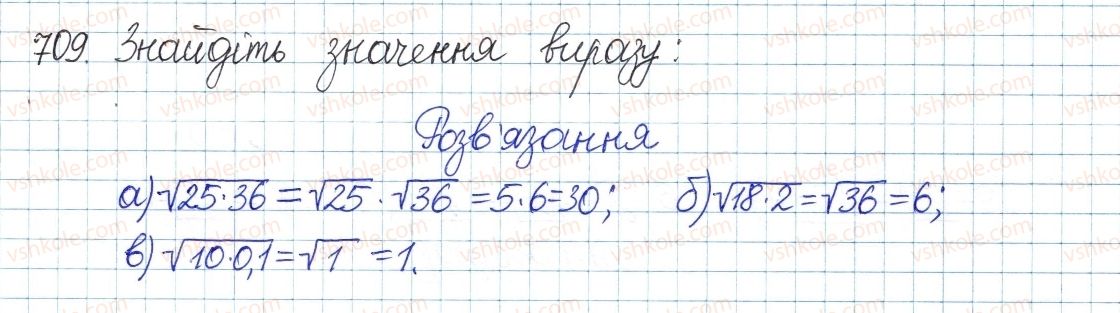 709. Знайдіть значення виразу:
Розв'язання
а) √25·36 = √25 · √36 = 5·6=30; б) √18·2 = √36 = 6;
в) √10·0,1 = √1 = 1.